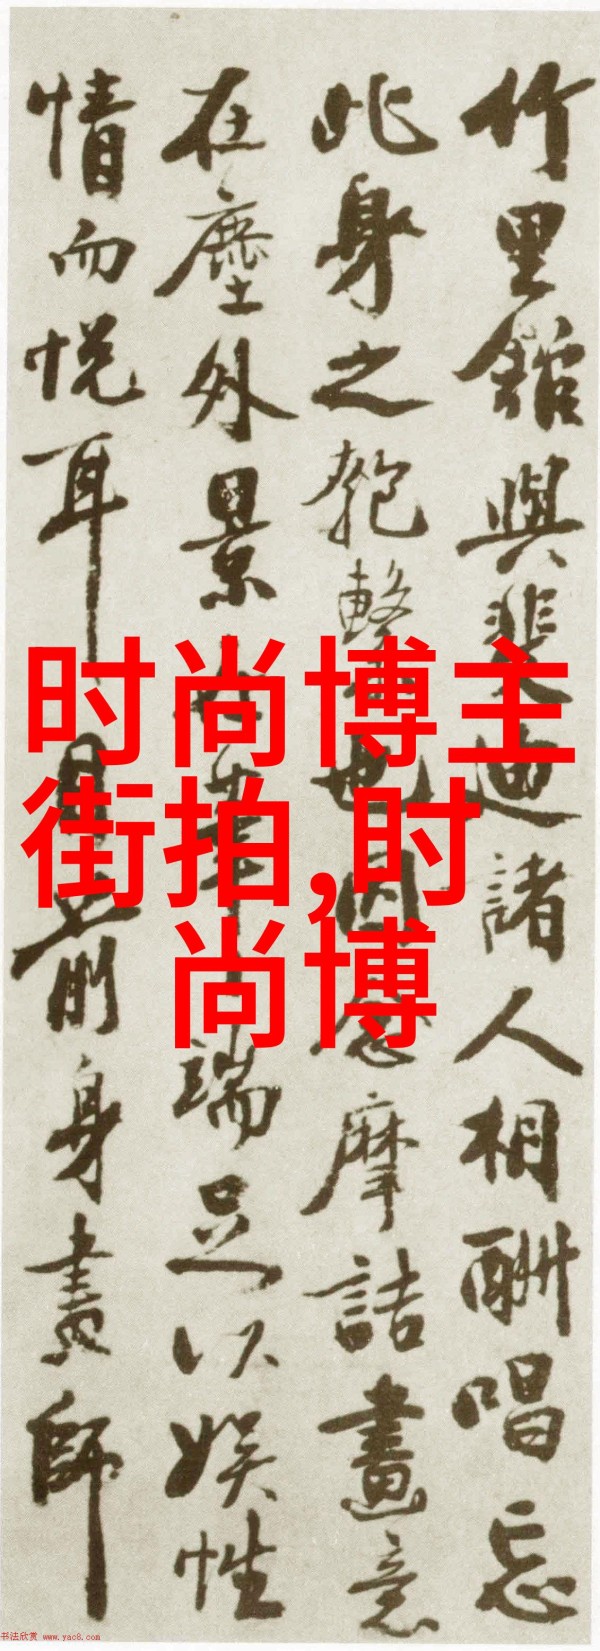 竹里館與斐迪諸人相酬唱忘
此身之匏繫也因念摩詰畫意
在塵外景在筆端足以娛性
情而悅耳目前身畫師
时尚博主
街拍,时
尚博
书法欣赏 www.yac8.com